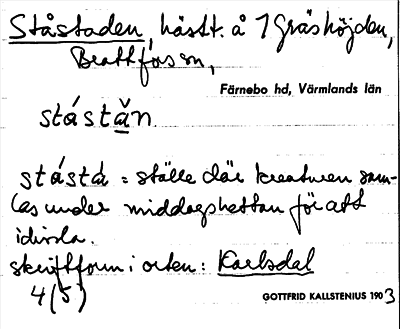 Ståstaden, hässt. å 1 Gräshöjden,
Brattforsn,
Färnebo hd, Värmlands län
stástăn.
stástá = ställe där kreaturen sam-
las under middagshettan för att
idissla.
skriftform i orten: Karlsdal
4(5)
GOTTFRID KALLSTENIUS 1903